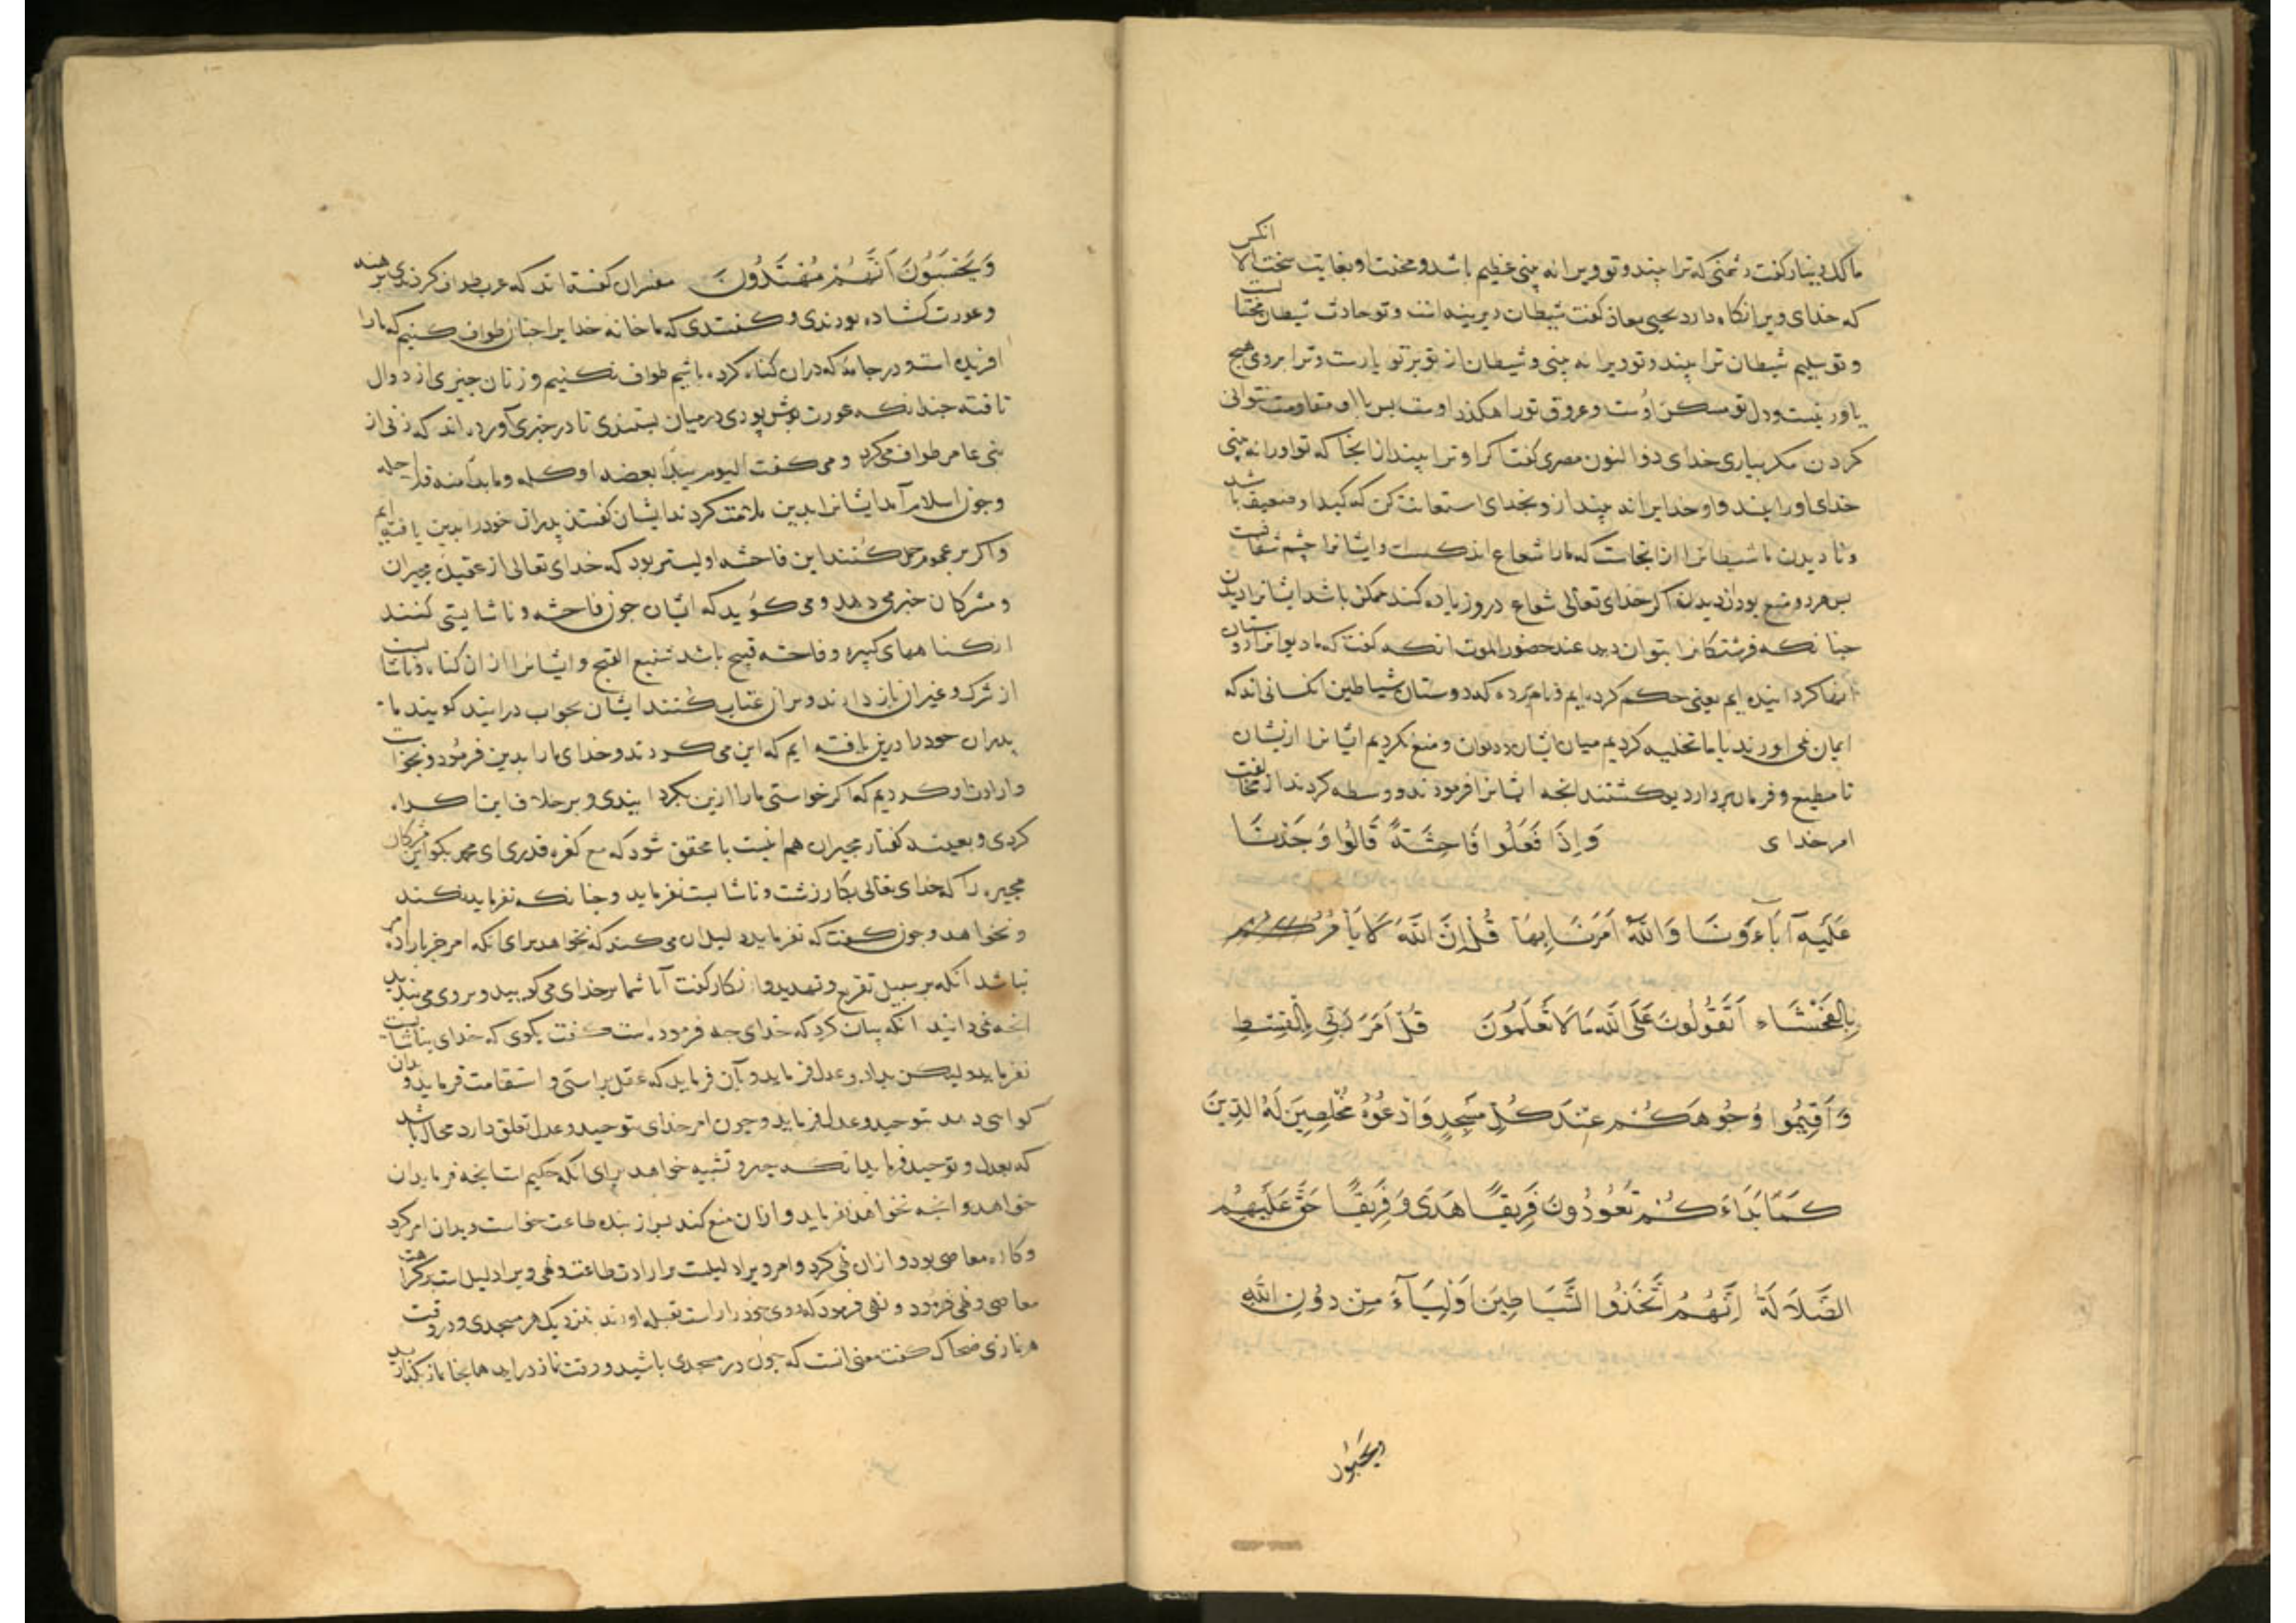 مالک دینار گفت دشمنی که ترا بیند و تو ویرا نه بینی عظیم باشد و محنت او بغایت سخت الا انکس
که خدای ویرا نگاه دارد یحیی معاذ گفت شیطان دیرینه است و تو حادث شیطان محتا لست
و تو سلیم شیطان ترا بیند و تو ویرا نه بینی و شیطان از تو بر تو یارست و ترا بروی هیچ
یاور نیست و دل تو مسکن اوست و عروق تو راهکذر اوست بس با او مقاومت نتوانی
کردن مکر بیاری خدای ذوالنون مصری گفت اکر او ترا بیند ازانجا که تو اورا نه بینی
خدای اورا بیند و او خدایرا نه بیند از و بخدای استعانت کن که کید او ضعیف باشد
و نا دیدن ما شیطانرا از انجاست که مارا شعاع اندکست و ایشانرا جشم شفافست
بس هر دو منع بود از دیدن اکر خدای تعالی شعاع در و زیاده کند ممکن باشد ایشانرا دیدن
جنانکه فرشتکانرا بتوان دید عند حضور الموت انکه گفت که ما دیوانرا دوستان
اینها کردانیده ایم یعنی حکم کرده ایم و نام برده که دوستان شیاطین انکسانی اند که
ایمان نمی اورند یا ما تخلیه کردیم میان ایشان و دیوان و منع نکردیم ایشانرا ازیشان
تا مطیع و فرمان بردار دیو کشتند انجه ایشانرا فرمودند و وسطه کردند از مخالفت
امر خدای وَاِذَا فَعَلُوا فَاحِشَةً قَالُوا وَجَدْنَا
عَلَيْهِ آبَاءَنَا وَاللّٰهُ اَمَرَنَا بِهَا قُلْ اِنَّ اللّٰهَ لَا يَأْمُرُ
بِالْفَحْشَاءِ اَتَقُولُونَ عَلَى اللّٰهِ مَا لَا تَعْلَمُونَ قُلْ اَمَرَ رَبِّي بِالْقِسْطِ
وَاَقِيمُوا وُجُوهَكُمْ عِنْدَ كُلِّ مَسْجِدٍ وَادْعُوهُ مُخْلِصِينَ لَهُ الدِّينَ
كَمَا بَدَاَكُمْ تَعُودُونَ فَرِيقًا هَدَى وَفَرِيقًا حَقَّ عَلَيْهِمُ
الضَّلَالَةُ اِنَّهُمُ اتَّخَذُوا الشَّيَاطِينَ اَوْلِيَاءَ مِنْ دُونِ اللّٰهِ
ویحسبون
وَيَحْسَبُونَ اَنَّهُمْ مُهْتَدُونَ مفسران گفته اند که عرب طواف کردندی برهنه
و عورت کشاده بودندی و گفتندی که ما خانه خدایرا جنان طواف کنیم که مارا
افریده است و در جامه که دران کناه کرده باشیم طواف نکنیم و زنان جیزی از دوال
تافته جندانکه عورت بوش بودی در میان بستندی تا در خبری آورده اند که زنی از
بنی عامر طواف می کرد و می گفت الیوم یبدا بعضه او کله وما بدا منه فلا احله
و جون اسلام آمد ایشانرا بدین ملامت کردند ایشان گفتند بدران خودرا بدین یافته ایم
و اکر بر عموم حمل کنند این فاحشه اولیتر بود که خدای تعالی از عقیده مجبران
و مشرکان خبر می دهد و می گوید که ایشان جون فاحشه و ناشایستی کنند
از کناههای کبیره و فاحشه قبیح باشد شنیع القبح و ایشانرا از ان کناه و ناشایست
از شرک و غیر ان باز دارند و بر ان عتاب کنند ایشان بجواب درایند کویند ما
بدران خودرا درین یافته ایم که این می کردند و خدای مارا بدین فرمود و بخواست
و ارادت او کردیم که اکر خواستی مارا ازین بکردانیدی و بر خلاف این اکراه
کردی و بعینه گفتار مجبران هم اینست تا محقق شود که مع کفره قدری ای محمد بکو این مشرکان
مجبره را که خدای تعالی بکار زشت و ناشایست نفرماید و جنانکه نفرماید نکند
و نخواهد و جون گفت که نفرماید دلیل ان می کند که نخواهد برای انکه امر جز باراده
نباشد انکه بر سبیل تقریع و تهدید و انکار گفت آیا شما بر خدای می کویید و بر وی می بندید
انجه نمی دانید انکه بیان کرد که خدای جه فرموده است گفت بکوی که خدای بناشایست
نفرماید ولیکن بداد و عدل فرماید و بآن فرماید که عقل براستی و استقامت فرماید و بدان
کواهی دهد بتوحید و عدل فرماید و جون امر خدای بتوحید و عدل تعلق دارد محال باشد
که بعدل و توحید فرماید انکه جبر و تشبیه خواهد برای انکه حکیم است انجه فرماید ان
خواهد و انجه نخواهد نفرماید و ازان منع کند بس از بنده طاعت خواست و بدان امر کرد
و کاره معاصی بود و ازان نهی کرد و امر ویرا دلیلست بر ارادت طاعت و نهی ویرا دلیل است بر کراهت
معاصی و نهی فرمود و نهی فرمود که روی خودرا راست بقبله اورند بنزدیک هر مسجدی و در وقت
هر نمازی ضحاک گفت معنی انست که جون در مسجدی باشید و وقت نماز دراید همانجا نماز بکذارید